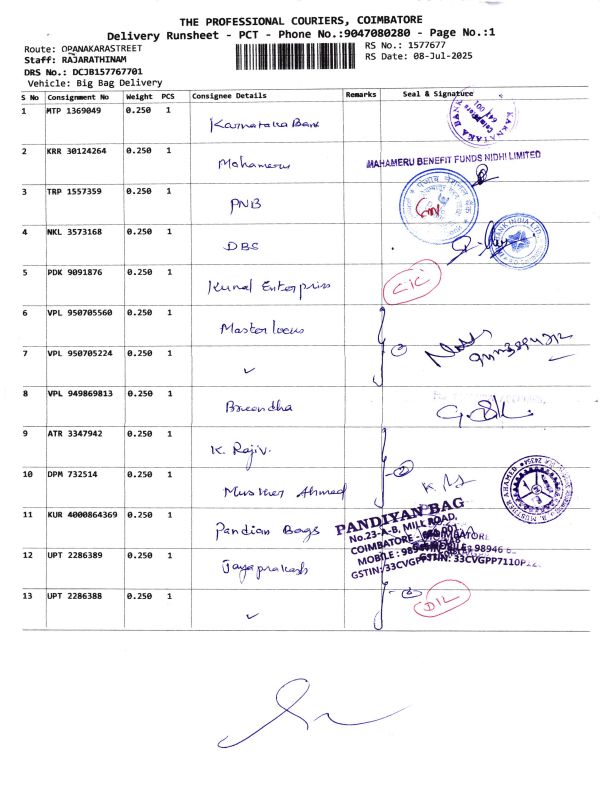 THE PROFESSIONAL COURIERS, COIMBATORE
Delivery Runsheet - PCT - Phone No.:9047080280 - Page No.:1
Route: OPANAKARASTREET
RS No.: 1577677
Staff: RAJARATHINAM
RS Date: 08-Jul-2025
DRS No.: DCJB157767701
Vehicle: Big Bag Delivery
S No Consignment No Weight PCS Consignee Details Remarks Seal & Signature
1 MTP 1369049 0.250 1 Karnataka Bank
KARNATAKA BANK
2 KRR 30124264 0.250 1 Mahameru
MAHAMERU BENEFIT FUNDS NIDHI LIMITED
3 TRP 1557359 0.250 1 PNB
4 NKL 3573168 0.250 1 DBS
BANK INDIA LTD.
5 PDK 9091876 0.250 1 Kunal Enterpriss
C/C
6 VPL 950705560 0.250 1 Master locus
7 VPL 950705224 0.250 1 ✓
8 VPL 949869813 0.250 1
9 ATR 3347942 0.250 1 K. Rajiv.
10 DPM 732514 0.250 1 Musther Ahmed
11 KUR 4000864369 0.250 1 Pandian Bags
PANDIYAN BAG
No.23-A-B, MILL ROAD,
COIMBATORE
12 UPT 2286389 0.250 1 Jayaprakash
13 UPT 2286388 0.250 1 ✓
D/L